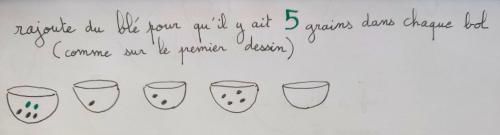 rajoute du blé pour qu'il y ait 5 grains dans chaque bol
(comme sur le premier dessin)